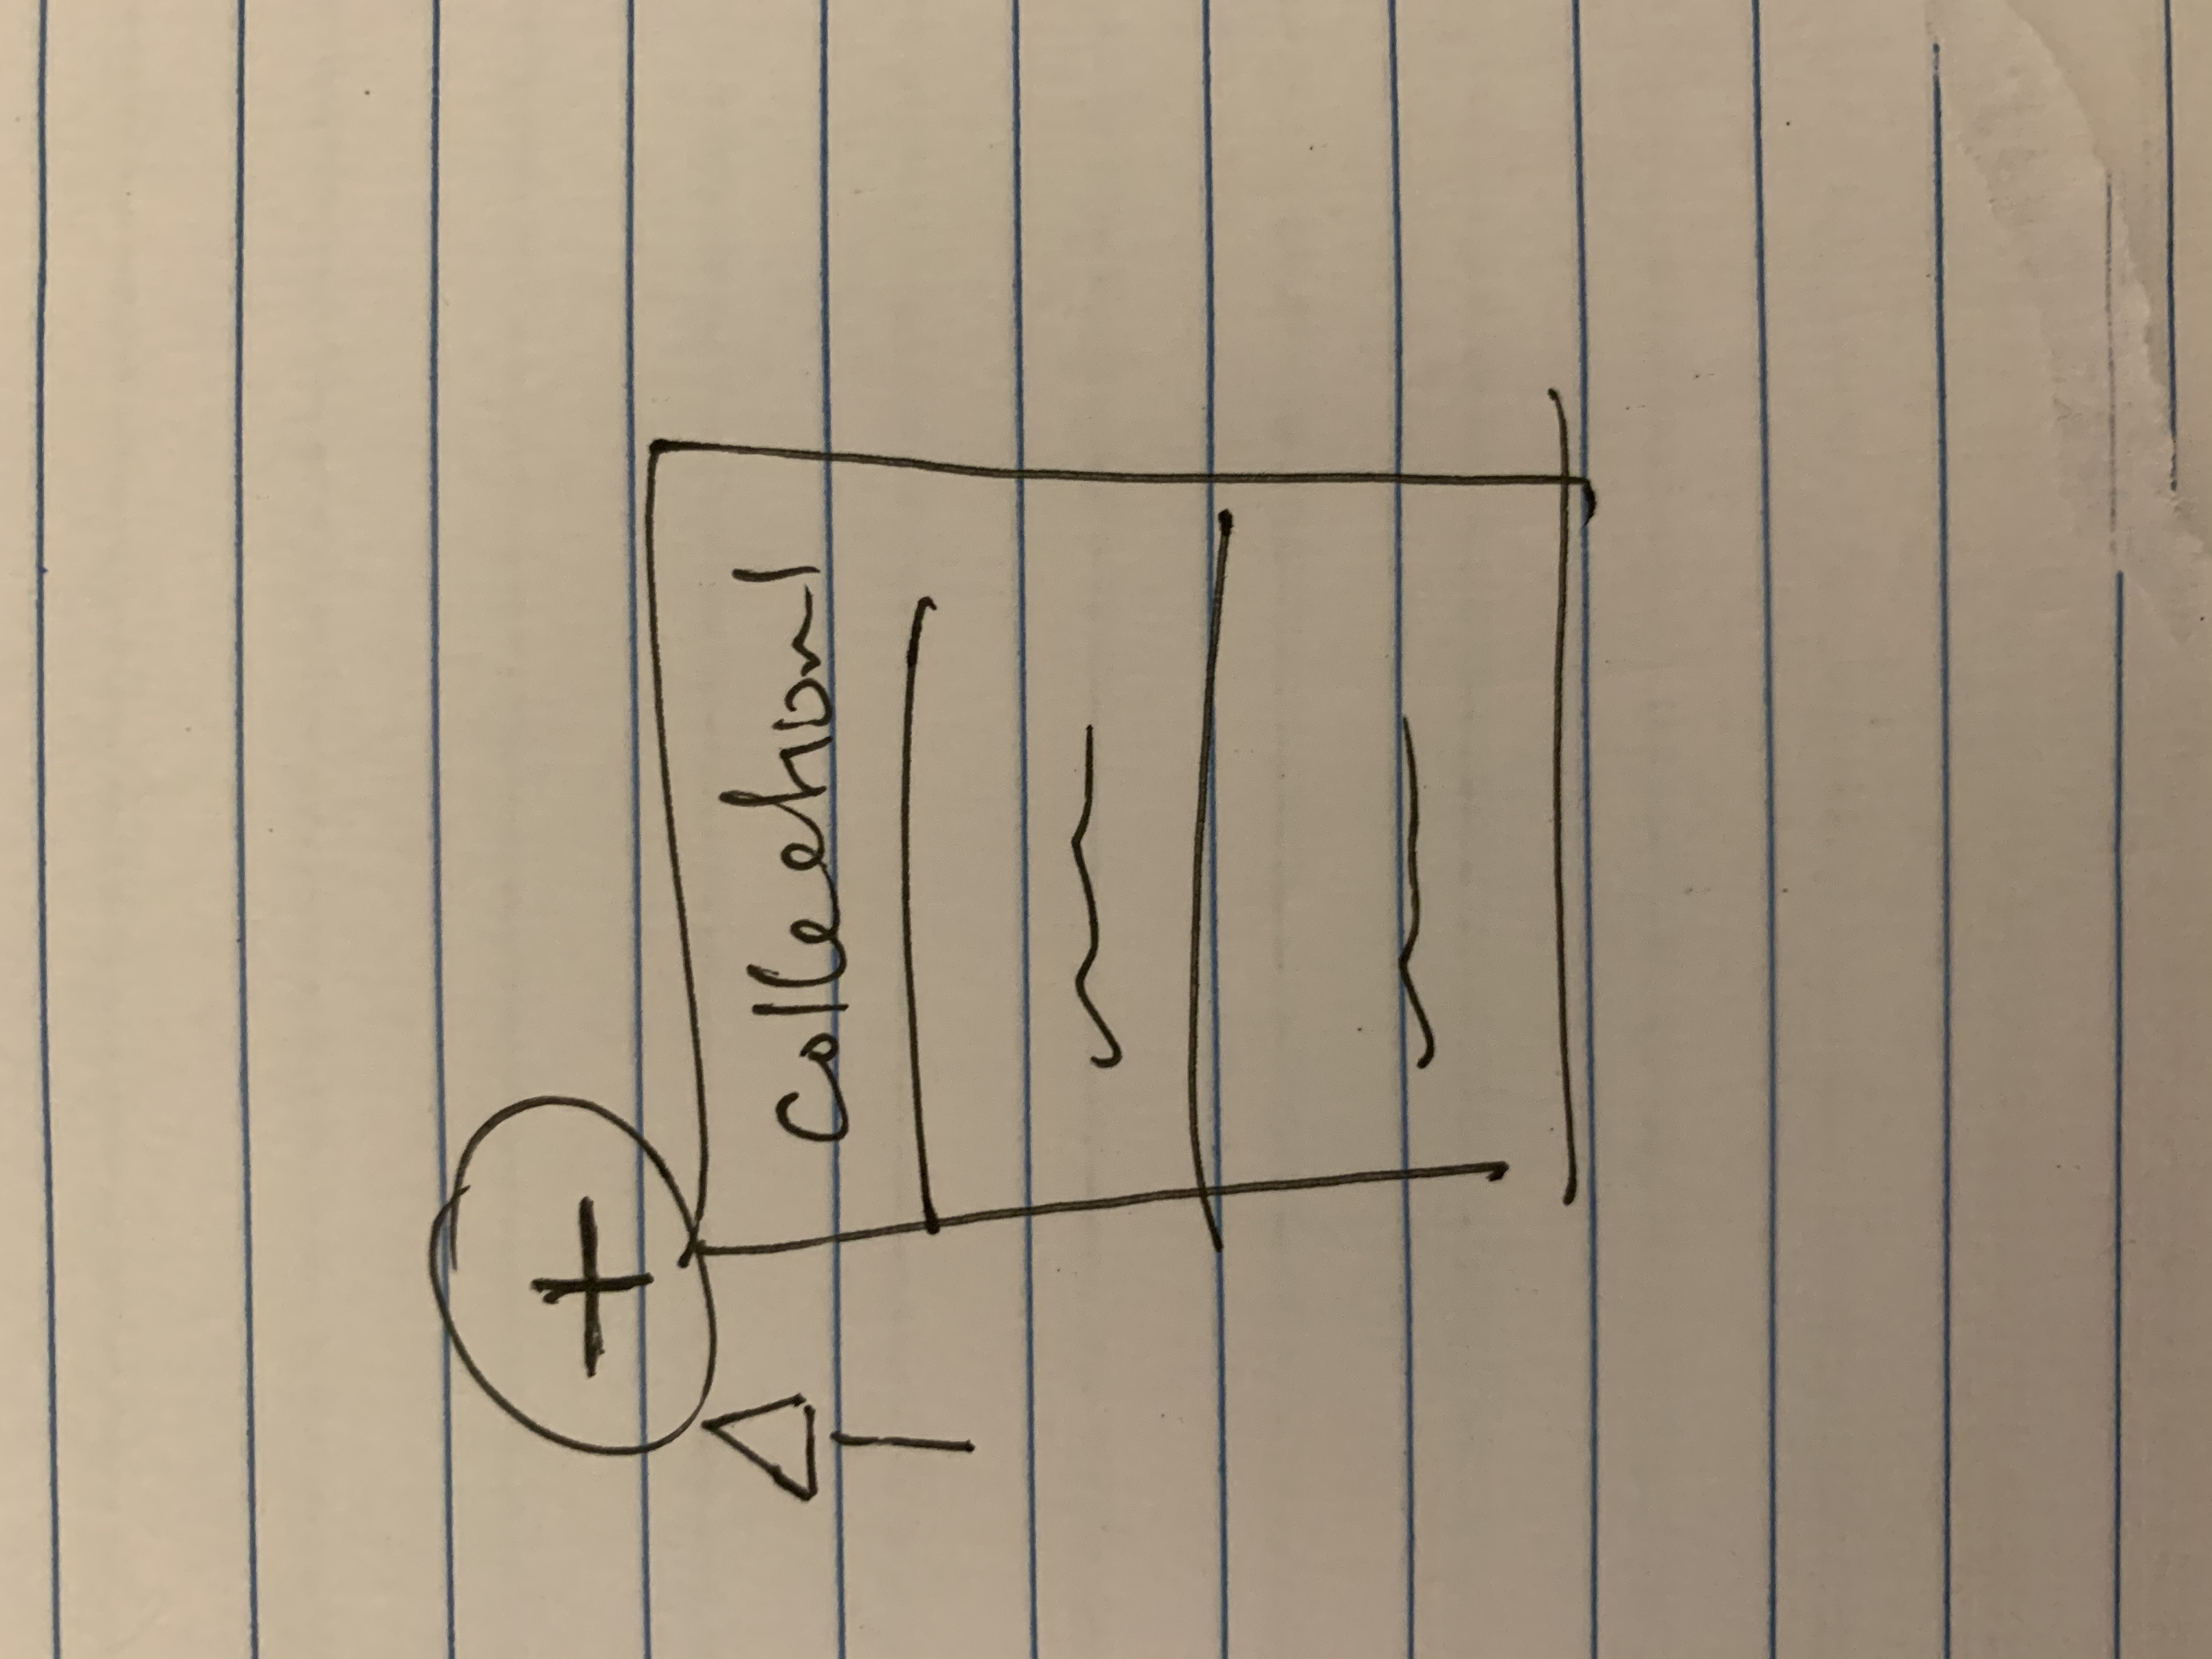 +
collection1